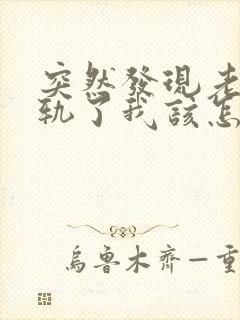 突然發現老
軌了我該怎
烏魯木齊—重